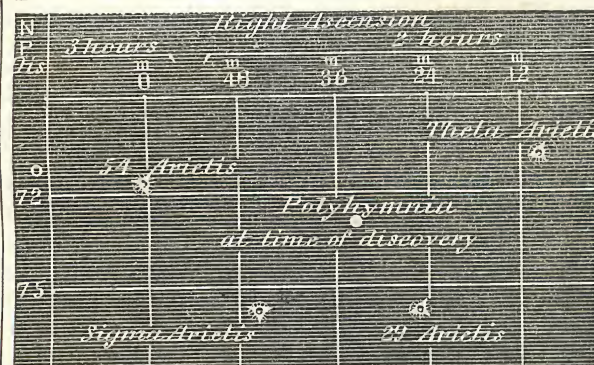 Right Ascension
N
P
Dis
3 hours
2 hours
m
0
m
48
m
36
m
24
m
12
Theta Arieti
54 Arietis
o
72
Polyhymnia
at time of discovery
75
Sigma Arietis
29 Arietis